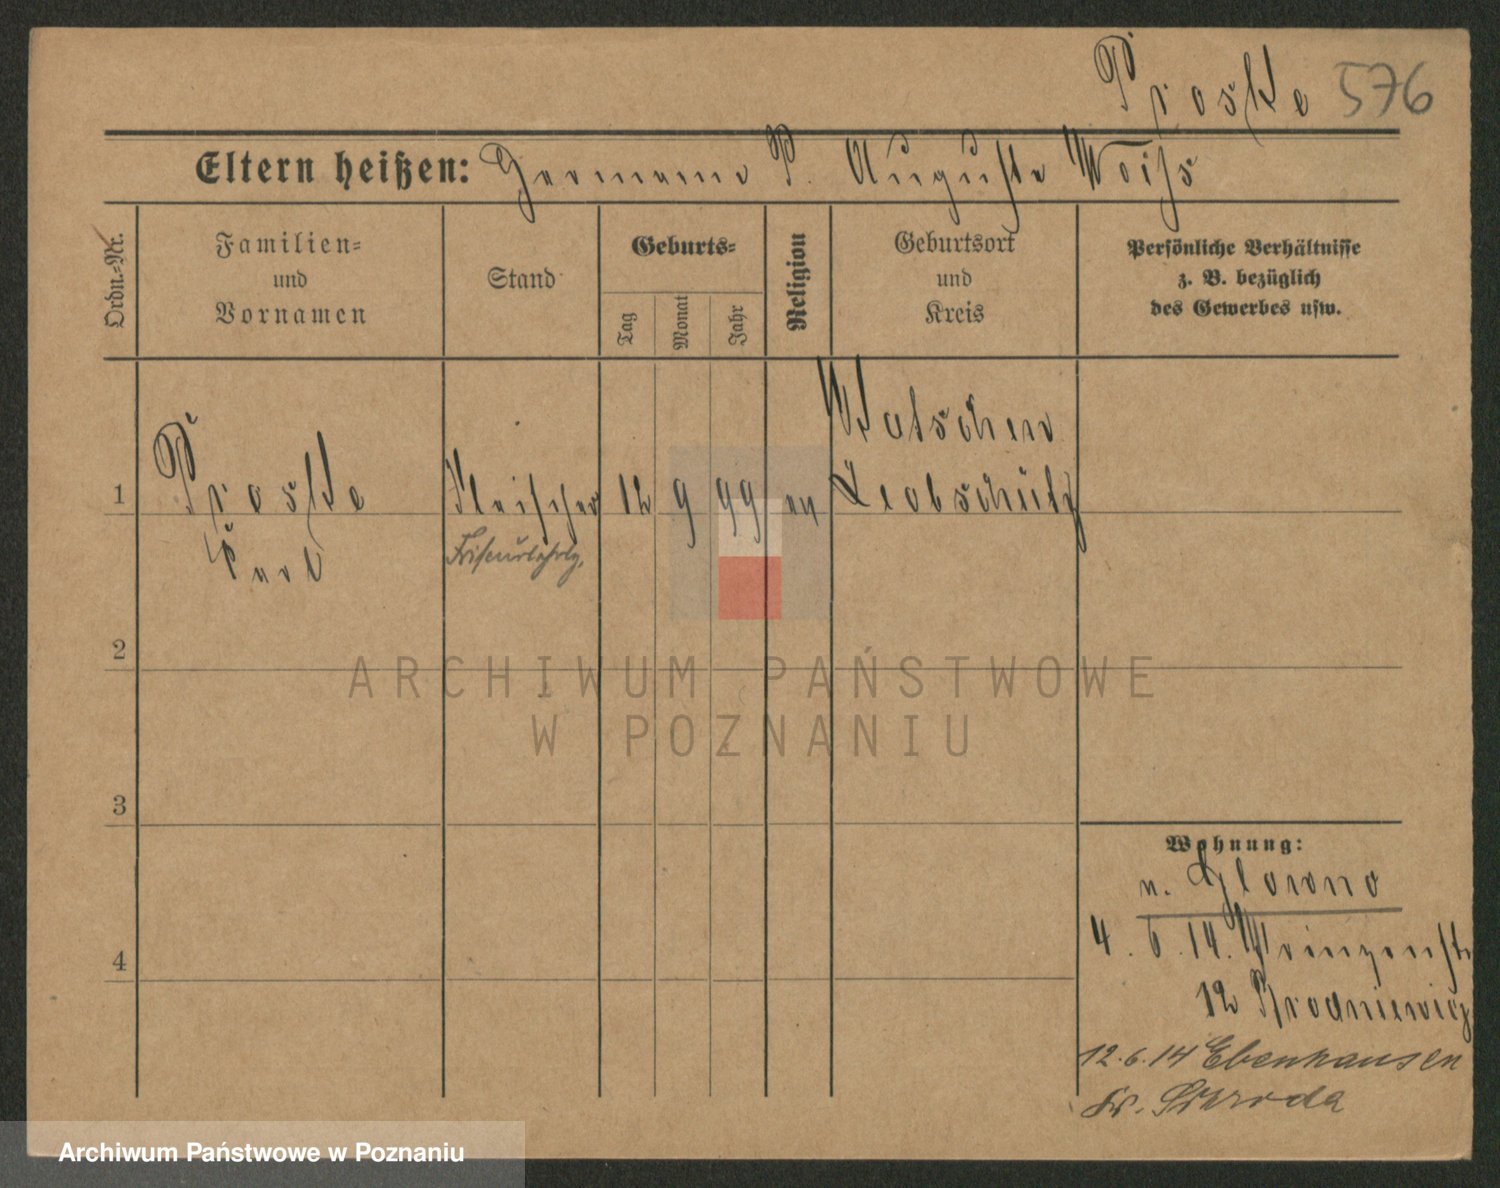 Proske 576
Eltern heißen: Hermann P. Auguste Weiss
Ordn.-Nr.
Familien-
und
Vornamen
Stand
Geburts-
Tag
Monat
Jahr
Religion
Geburtsort
und
Kreis
Persönliche Verhältnisse
z. B. bezüglich
des Gewerbes usw.
1
Proske
Carl
Fleischer
Friseurlehrlg.
12
9
99
ev
Katscher
Leobschütz
2
3
4
Wohnung:
n. Glowno
4. 6. 14.
12
12. 6. 14 Ebenhausen
Kr. Schroda
ARCHIWUM PAŃSTWOWE
W POZNANIU
Archiwum Państwowe w Poznaniu